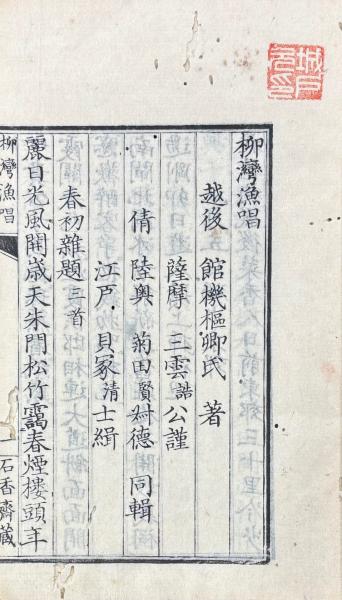 柳灣漁唱
越後 館機樞卿氏 著
薩摩 三雲誥公謹
倩 陸奥 菊田賢叔德 同輯
江戸 貝冢清士緝
春初雜題三首
麗日光風開歳天朱門松竹靄春煙樓頭年
柳灣漁唱
一
石香齋藏